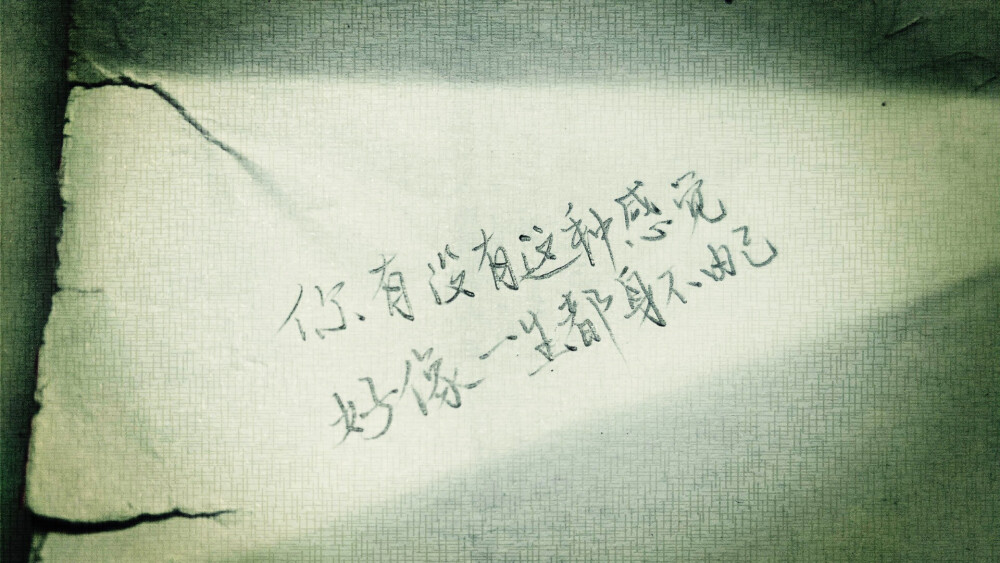 你有没有这种感觉
好像一生都身不由己